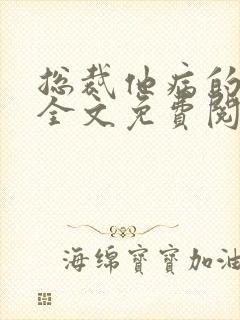 总裁他病的
全文免費閱
海绵寶寶加油